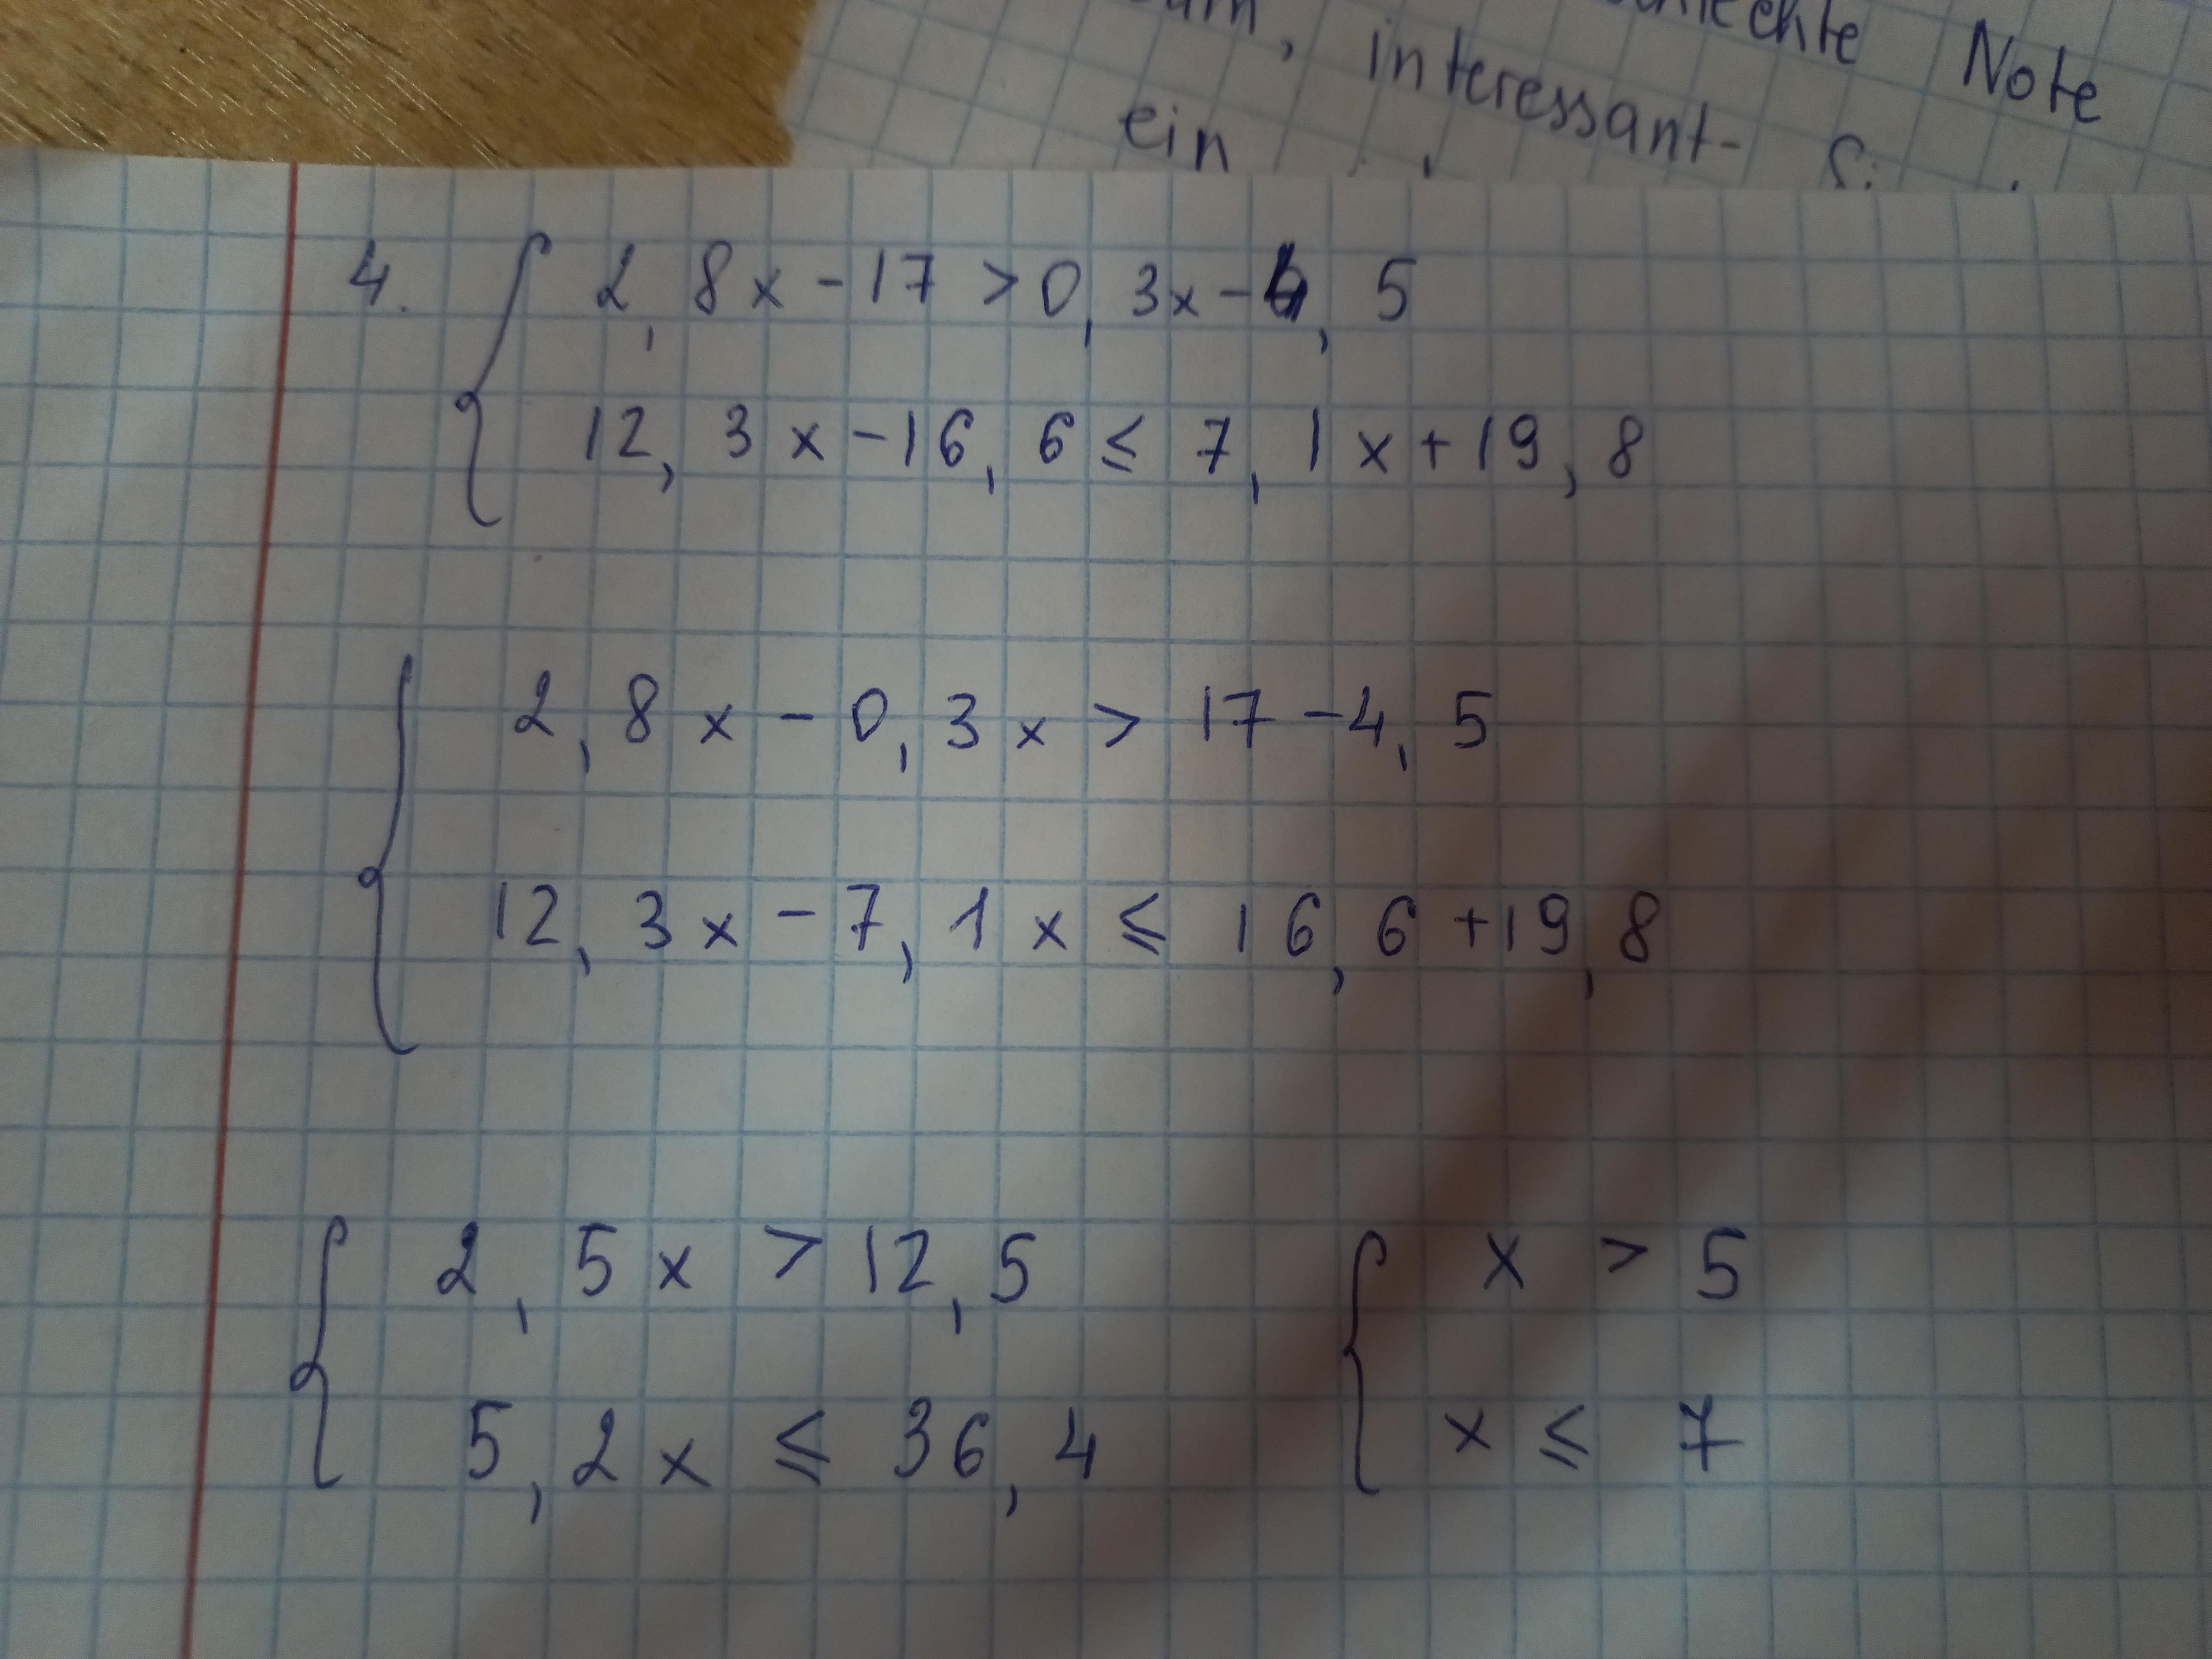 Note
interessant-
ein
4. { 2,8x-17 >0,3x-4,5
12,3x-16,6≤7,1x+19,8
{ 2,8x-0,3x > 17-4,5
12,3x-7,1x ≤ 16,6+19,8
{ 2,5x > 12,5 { x > 5
5,2x ≤ 36,4 x ≤ 7